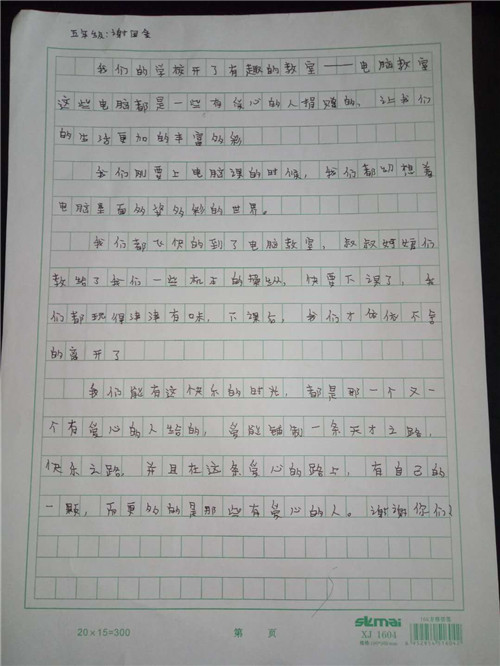 五年级:谢
我们的学校开了有趣的教室——电脑教室
这些电脑都是一些有爱心的人捐赠的,让我们
的生活更加的丰富多彩
我们刚要上电脑课的时候,我们都幻想着
电脑里面多姿多彩的世界。
我们都飞快的到了电脑教室,叔叔姐姐们
教给了我们一些机子的操纵,快要下课了,我
们都玩得津津有味,下课后,我们才依依不舍
的离开了
我们能有这快乐的时光,都是那一个又一
个有爱心的人给的,爱能铺制一条天才之路,
快乐之路,并且在这条爱心的路上,有自己的
一颗,而更多的是那些有爱心的人。谢谢你们
20×15=300
第 页
XJ 1604